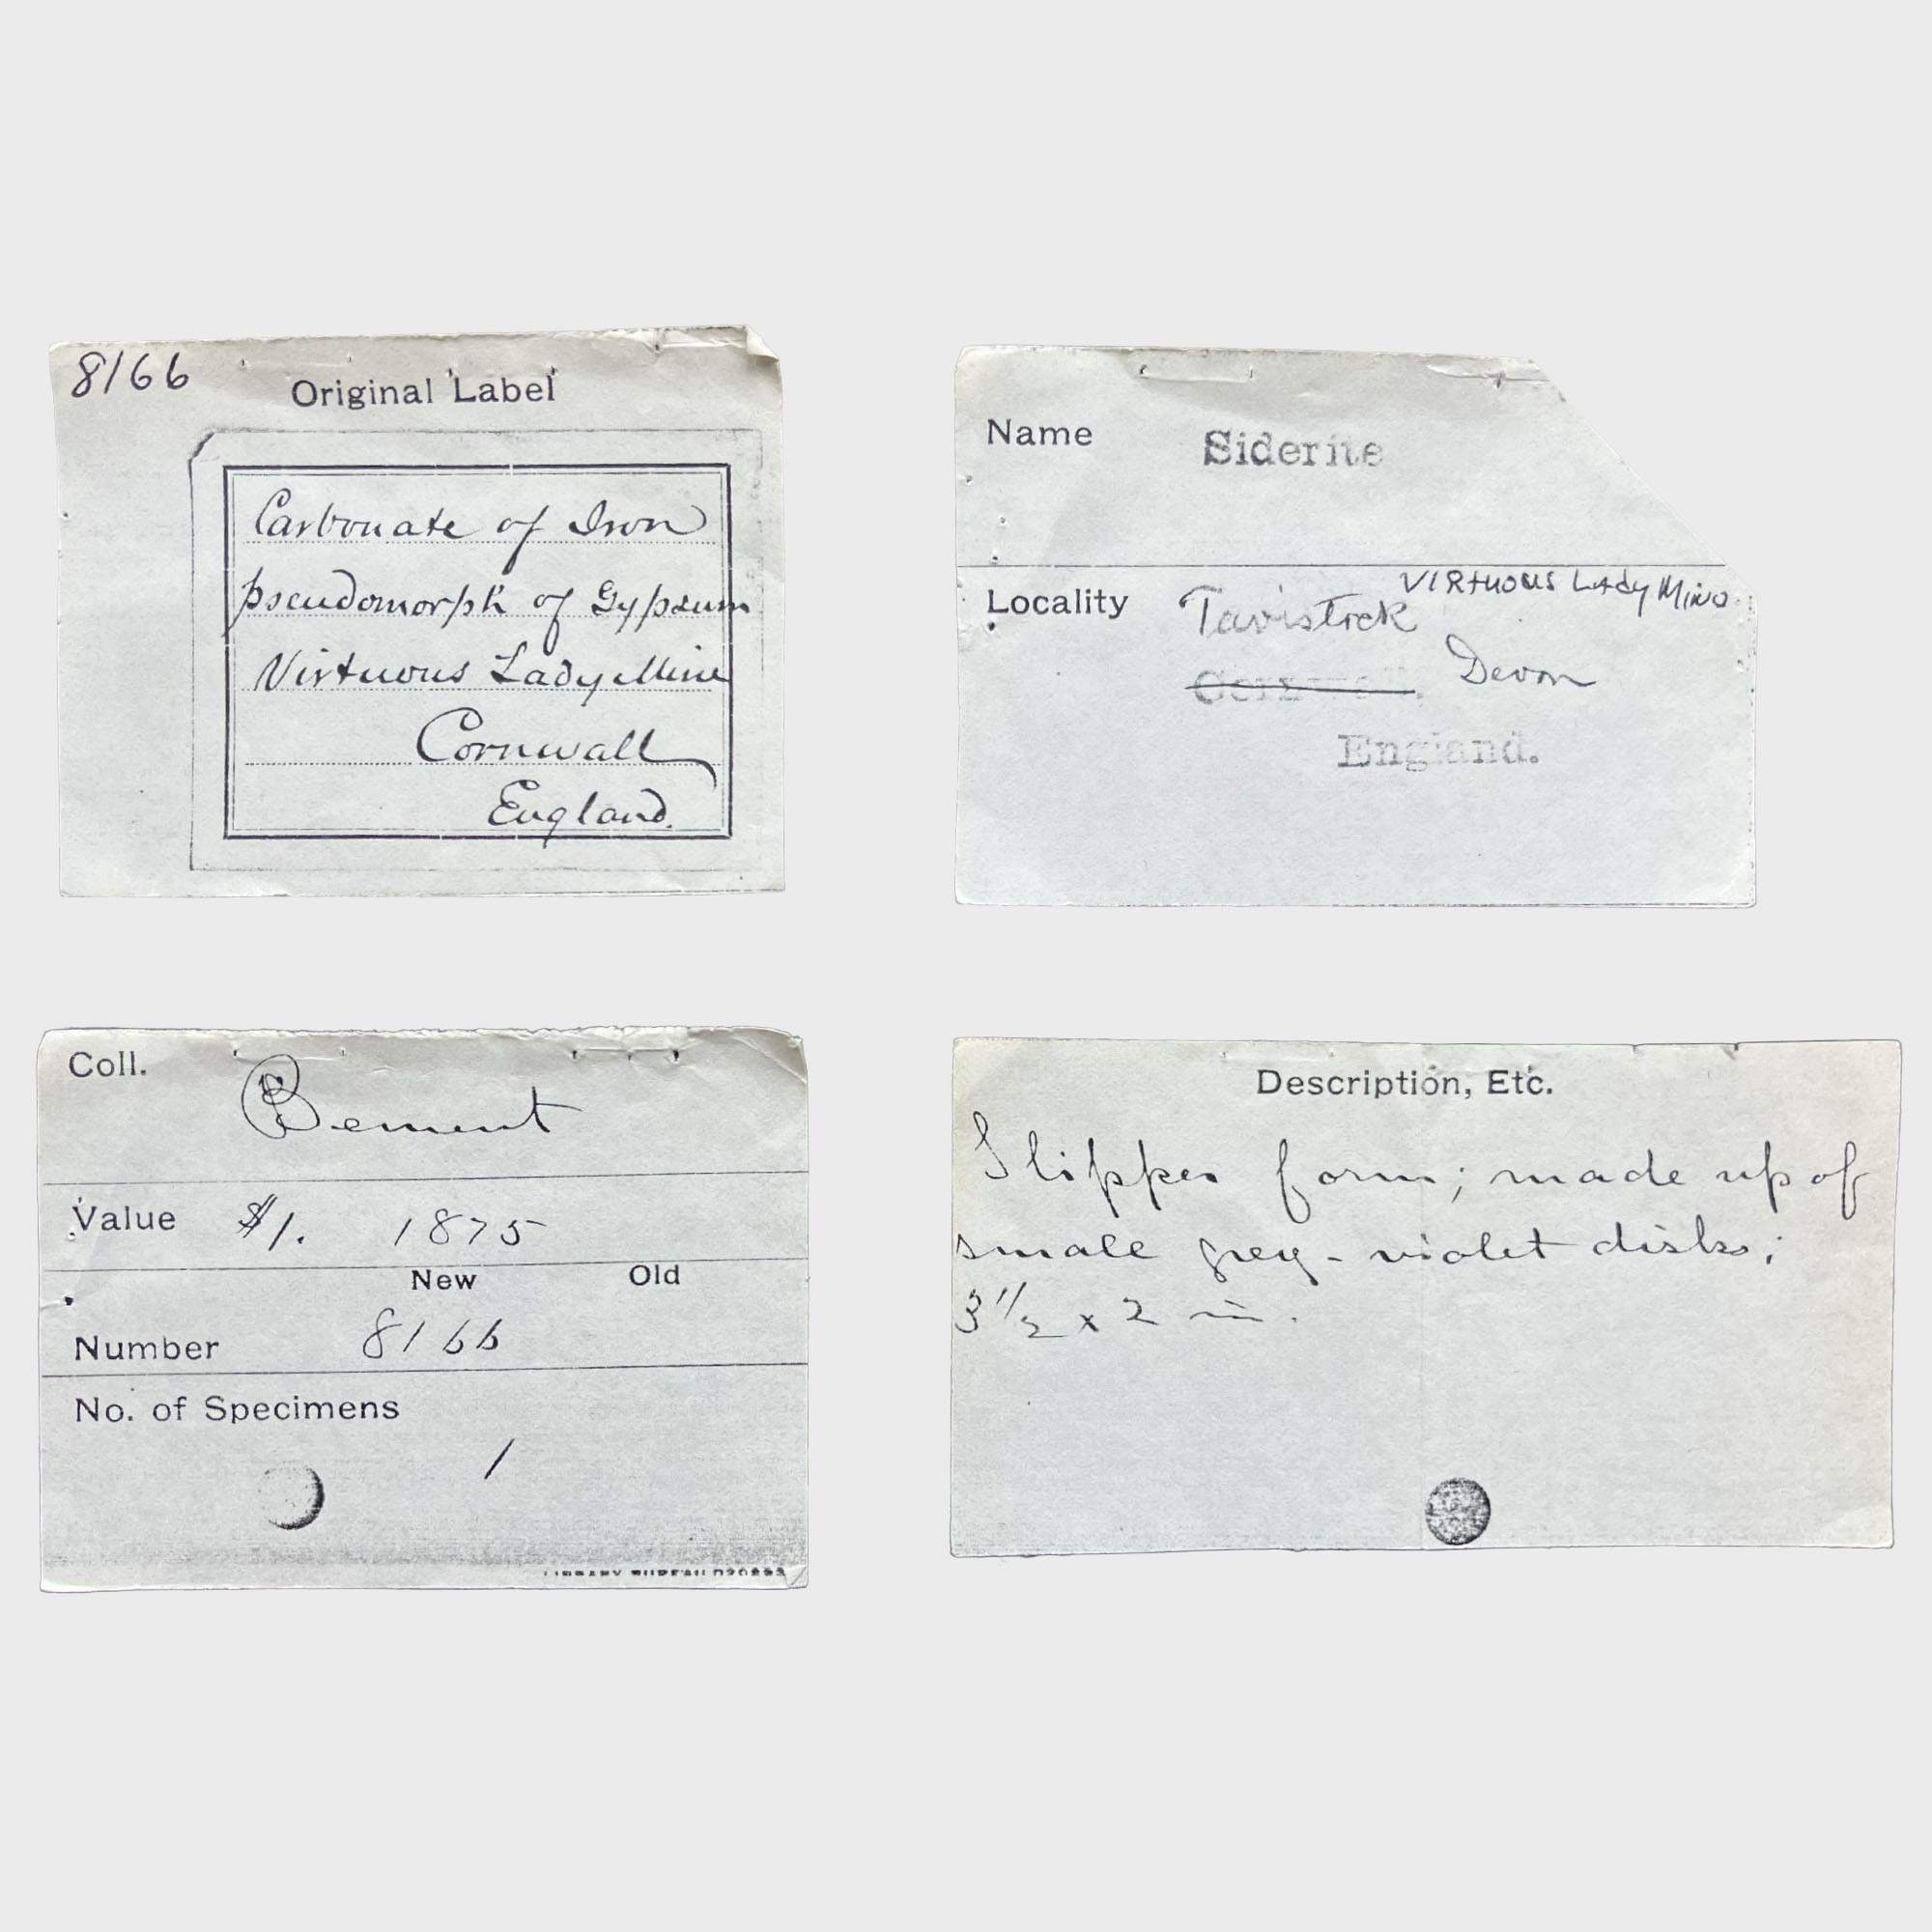 8166
Original Label
Carbonate of Iron
pseudomorph of Gypsum
Virtuous Lady Mine
Cornwall
England.
Name Siderite
Locality Tavistock VIRTUOUS LADY MINE
Cornwall. Devon
England.
Coll. Bement
Value $1. 1875
New Old
Number 8166
No. of Specimens
1
LIBRARY BUREAU
Description, Etc.
Slipper form; made up of
small grey-violet disks;
3 1/2 x 2 in.